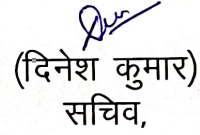 (दिनेश कुमार)
सचिव,